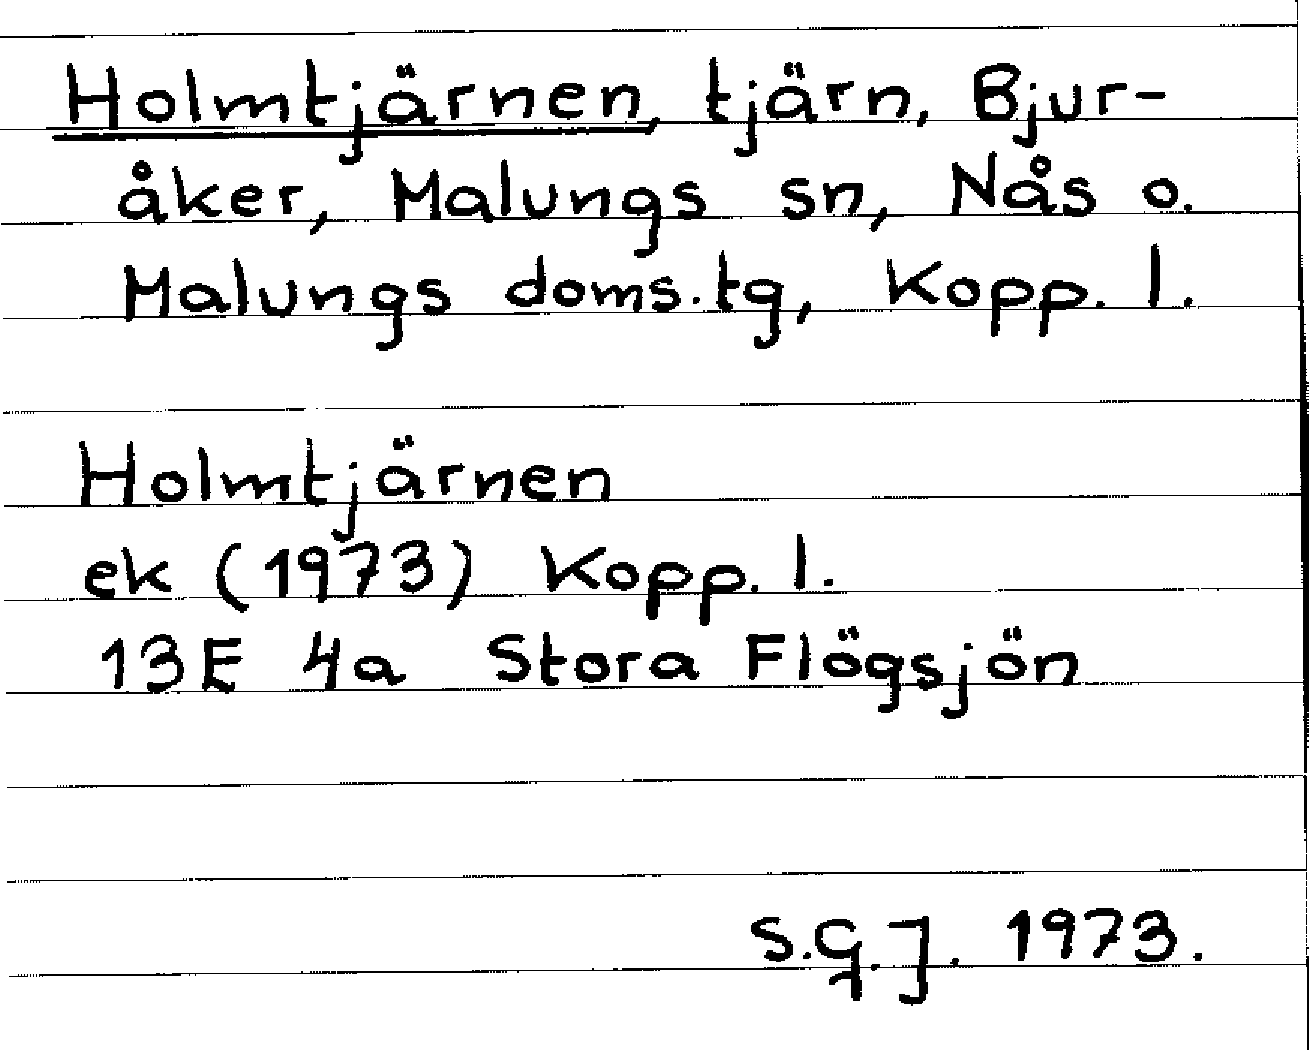 Holmtjärnen, tjärn, Bjur-
åker, Malungs sn, Nås o.
Malungs doms.tg, Kopp. l.
Holmtjärnen
ek (1973) Kopp. l.
13E 4a Stora Flögsjön
S.G.J. 1973.